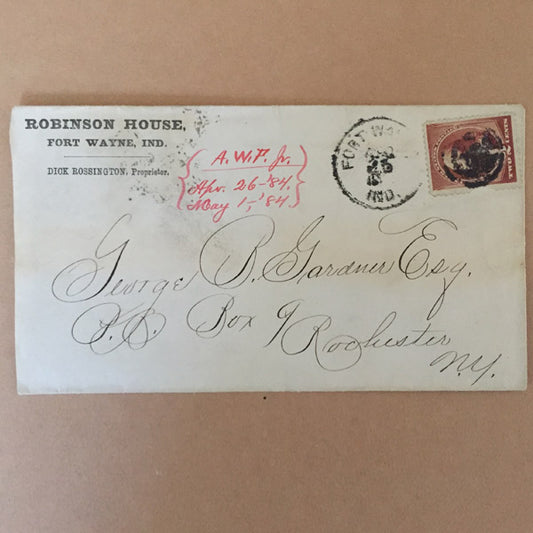 ROBINSON HOUSE,
FORT WAYNE, IND.
DICK ROSSINGTON, Proprietor.
A. W. P. Jr.
Apr. 26-'84.
May 1-,'84.
FORT WA
IND.
TWO 2 CENTS
George B. Gardner Esq.
P.O. Box 9
Rochester
N.Y.